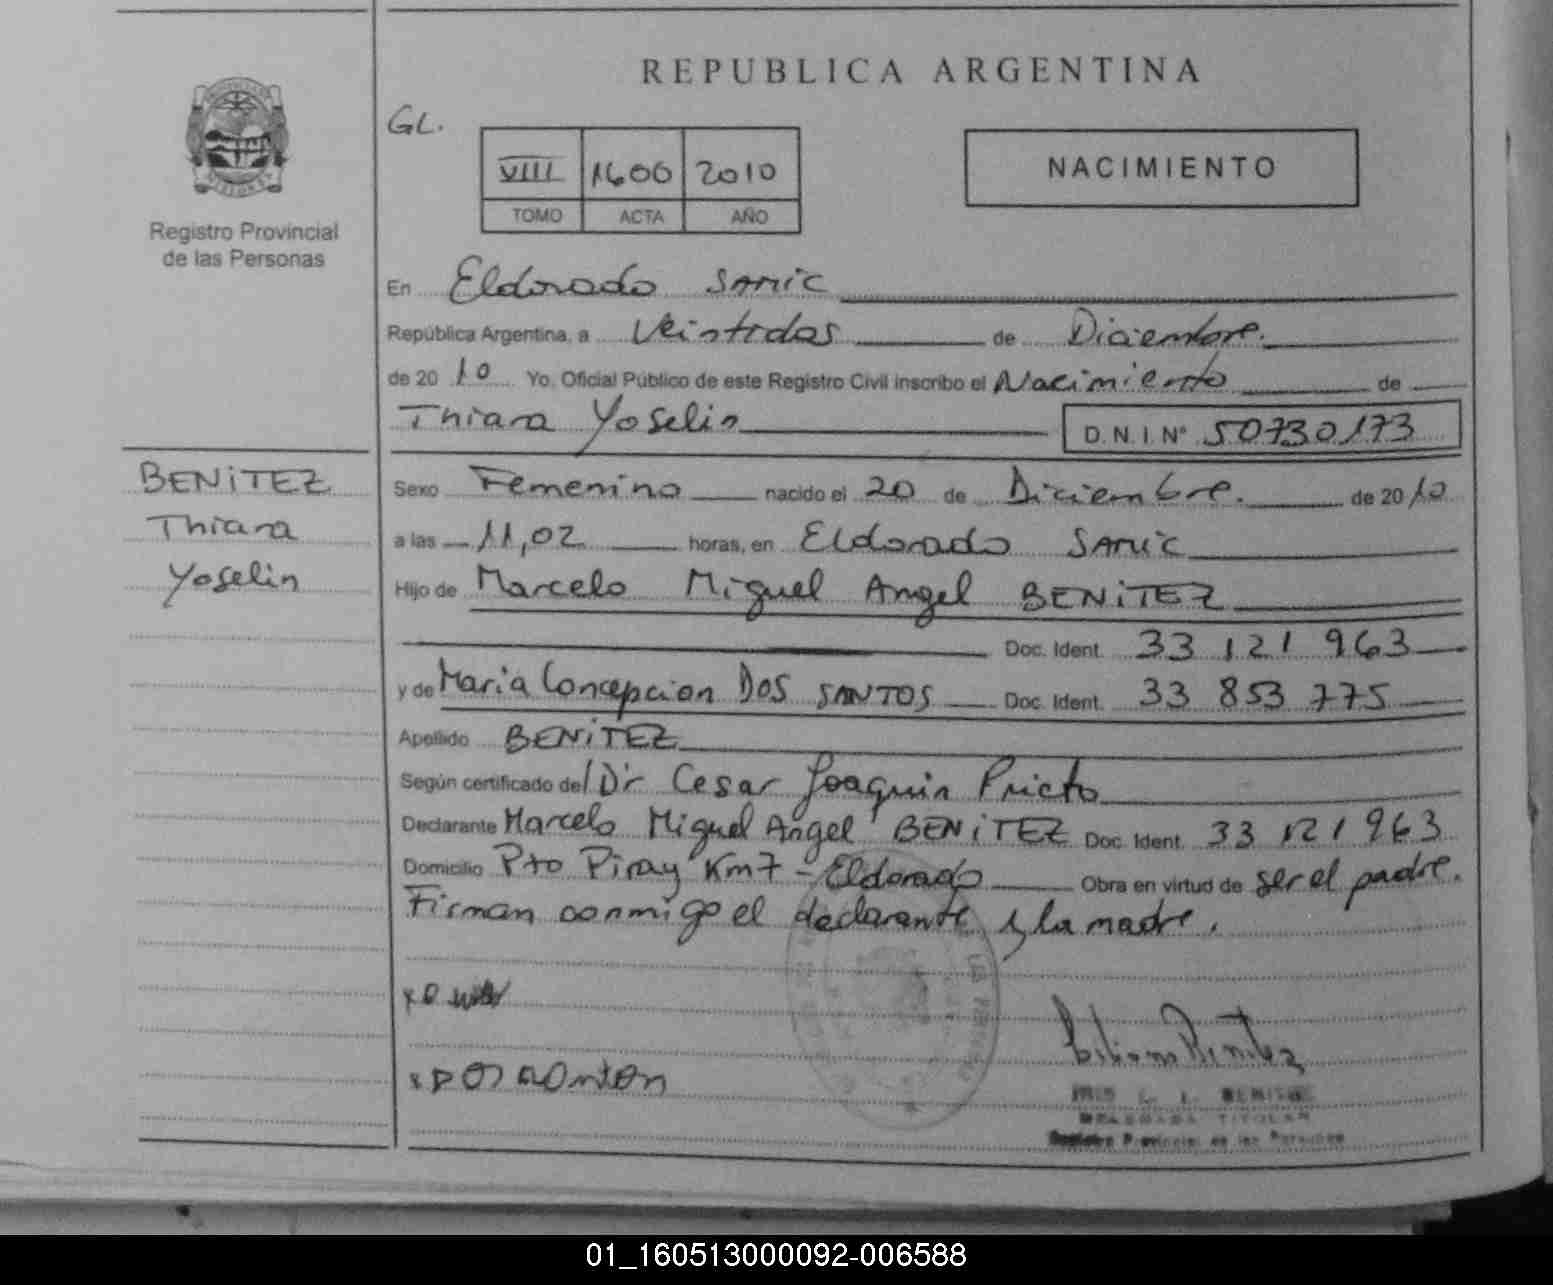 REPUBLICA ARGENTINA
GL.
NACIMIENTO
VIII 1600 2010
TOMO ACTA AÑO
Registro Provincial
de las Personas
En Eldorado SAMIC
República Argentina, a Veintidos de Diciembre.
de 2010 Yo, Oficial Público de este Registro Civil inscribo el Nacimiento de
Thiara Yoselin D.N.I. Nº 50730173
BENITEZ
Thiara
Yoselin
Sexo Femenino nacido el 20 de Diciembre. de 2010
a las 11,02 horas, en Eldorado SAMIC
Hijo de Marcelo Miguel Angel BENITEZ
Doc. Ident. 33 121 963
y de Maria Concepcion DOS SANTOS Doc. Ident. 33 853 775
Apellido BENITEZ
Según certificado del Dr Cesar Joaquin Prieto
Declarante Marcelo Miguel Angel BENITEZ Doc. Ident. 33 121 963
Domicilio Pto Piray Km7 - Eldorado Obra en virtud de ser el padre.
Firman conmigo el declarante y la madre.
BENITEZ
DELEGADA TITULAR
Registro Provincial de las Personas
01_160513000092-006588